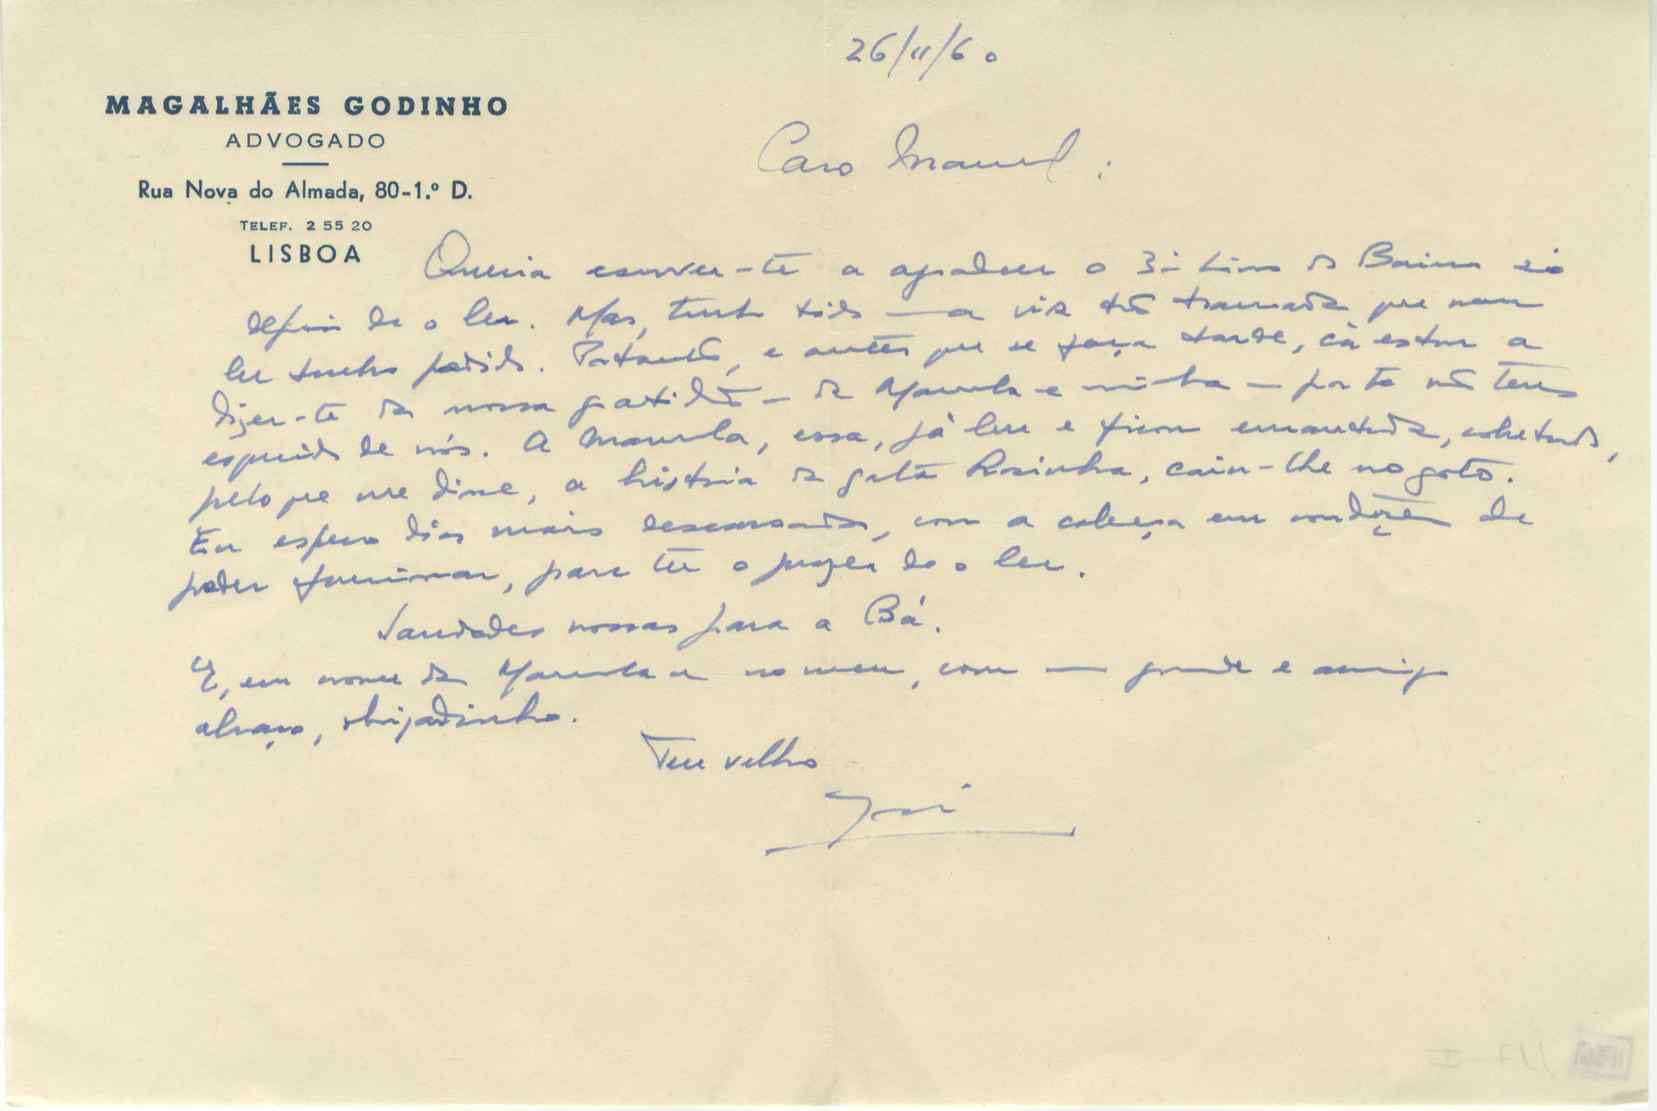 26/11/60
MAGALHÃES GODINHO
ADVOGADO
Rua Nova do Almada, 80-1.º D.
TELEF. 2 55 20
LISBOA
Caro Manuel:
Queria escrever-te a agradecer o 3º Livro de Bairro só
depois de o ler. Mas, tenho tido uma vida tão tramada que nem
ler tenho podido. Portanto, e antes que se faça tarde, cá estou a
dizer-te da nossa gratidão – da Manuela e minha – por te não teres
esquecido de nós. A Manuela, essa, já leu e ficou encantada, sobretudo,
pelo que me disse, a história da gata Rosinha, caiu-lhe no goto.
Eu espero dias mais descansados, com a cabeça em condições de
poder funcionar, para ter o prazer de o ler.
Saudades nossas para a Bá.
E, em nome da Manuela e no meu, com um grande e amigo
abraço, obrigadinho.
Teu velho